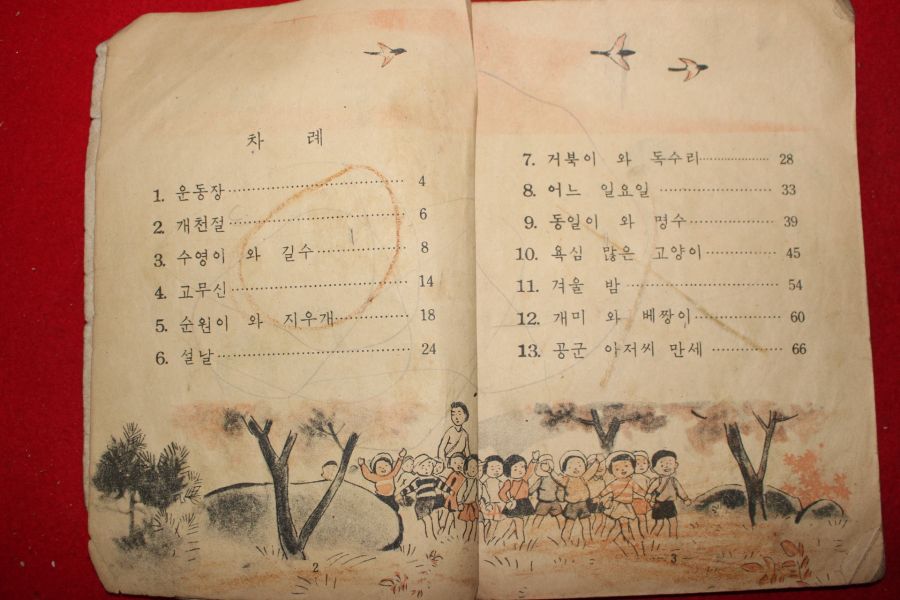 차 례
1. 운동장 4
2. 개천절 6
3. 수영이 와 길수 8
4. 고무신 14
5. 순원이 와 지우개 18
6. 설날 24
2
7. 거북이 와 독수리 28
8. 어느 일요일 33
9. 동일이 와 명수 39
10. 욕심 많은 고양이 45
11. 겨울 밤 54
12. 개미 와 베짱이 60
13. 공군 아저씨 만세 66
3